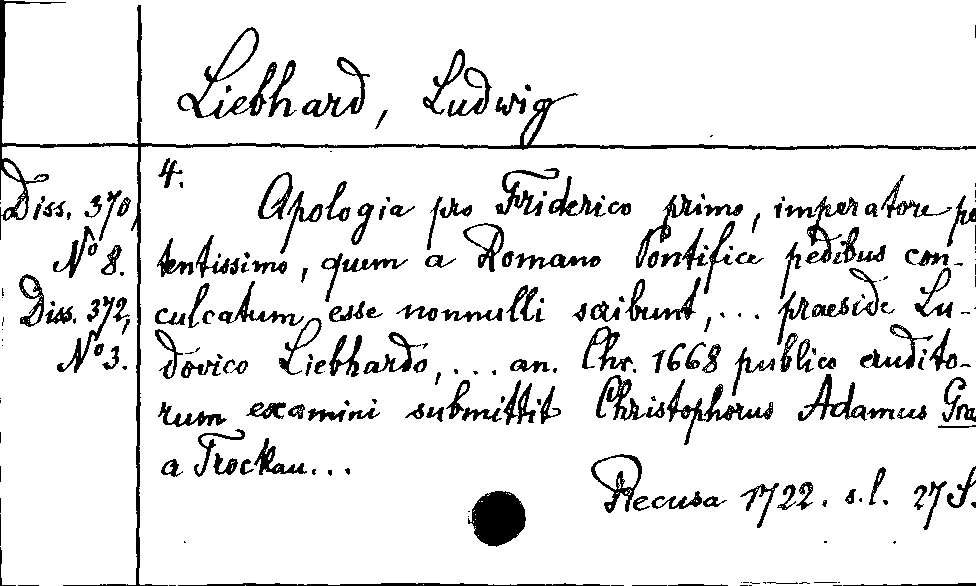 Liebhard, Ludwig
4.
Diss. 370,
Nº 8.
Diss. 372,
Nº 3.
Apologia pro Friderico primo, imperatore po
tentissimo, quem a Romano Pontifice pedibus con-
culcatum esse nonnulli scribunt, ... praeside Lu-
dovico Liebhardo, ... an. Chr. 1668 publico erudito-
rum examini submittit Christophorus Adamus Gra
a Trockau...
Recusa 1722. s.l. 27 S.